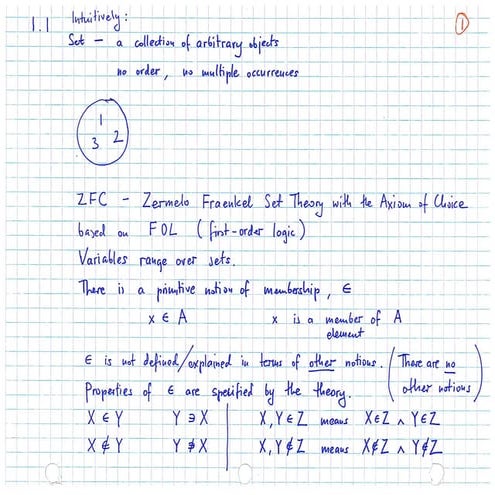 1.1 Intuitively: 1
Set – a collection of arbitrary objects
no order, no multiple occurrences
1
3 2
ZFC – Zermelo Fraenkel Set Theory with the Axiom of Choice
based on FOL (first-order logic)
Variables range over sets.
There is a primitive notion of membership, ∈
x ∈ A x is a member of A
element
∈ is not defined/explained in terms of other notions. (There are no
Properties of ∈ are specified by the theory. other notions)
X ∈ Y Y ∋ X X, Y ∈ Z means X ∈ Z ∧ Y ∈ Z
X ∉ Y Y ∌ X X, Y ∉ Z means X ∉ Z ∧ Y ∉ Z